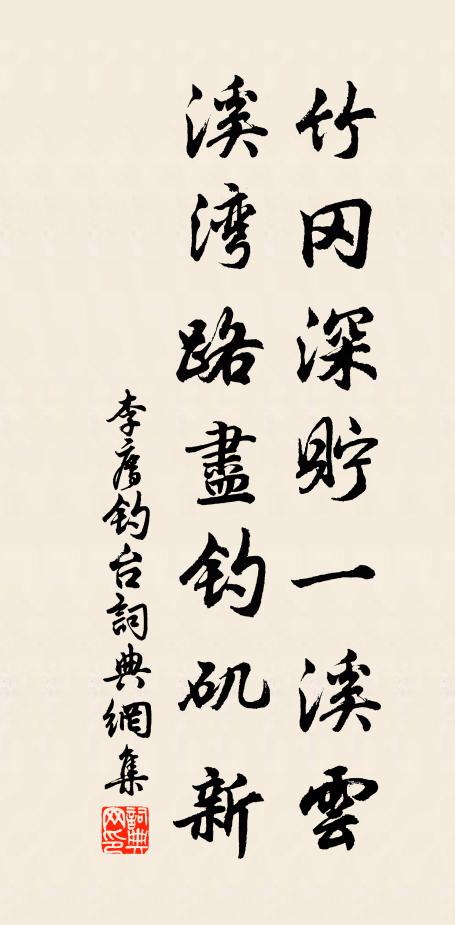 竹冈深貯一溪雲
溪湾路盡钓矶新
李廌钓台詞典網集
詞典网印